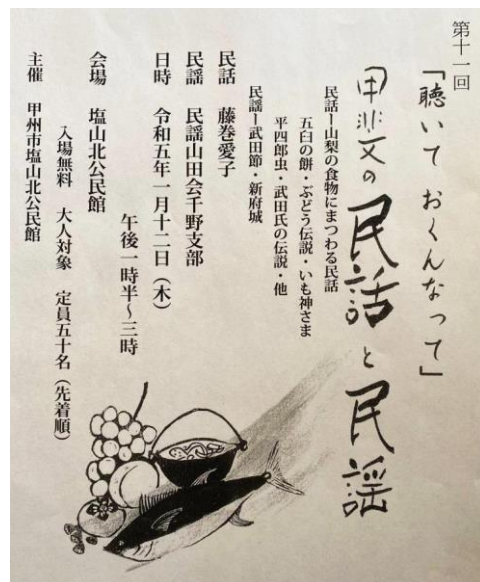 第十一回
「聴いて おくんなって」
甲斐の民話と民謡
民話ー山梨の食物にまつわる民話
五臼の餅・ぶどう伝説・いも神さま
平四郎虫・武田氏の伝説・他
民謡ー武田節・新府城
民話　藤巻愛子
民謡　民謡山田会千野支部
日時　令和五年一月十二日（木）
午後一時半～三時
会場　塩山北公民館
入場無料　大人対象　定員五十名（先着順）
主催　甲州市塩山北公民館